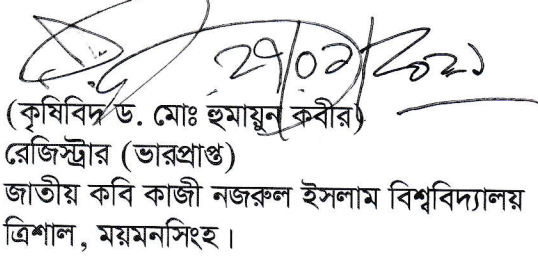 ২৭/০১/২০২১
(কৃষিবিদ ড. মোঃ হুমায়ুন কবীর)
রেজিস্ট্রার (ভারপ্রাপ্ত)
জাতীয় কবি কাজী নজরুল ইসলাম বিশ্ববিদ্যালয়
ত্রিশাল, ময়মনসিংহ।